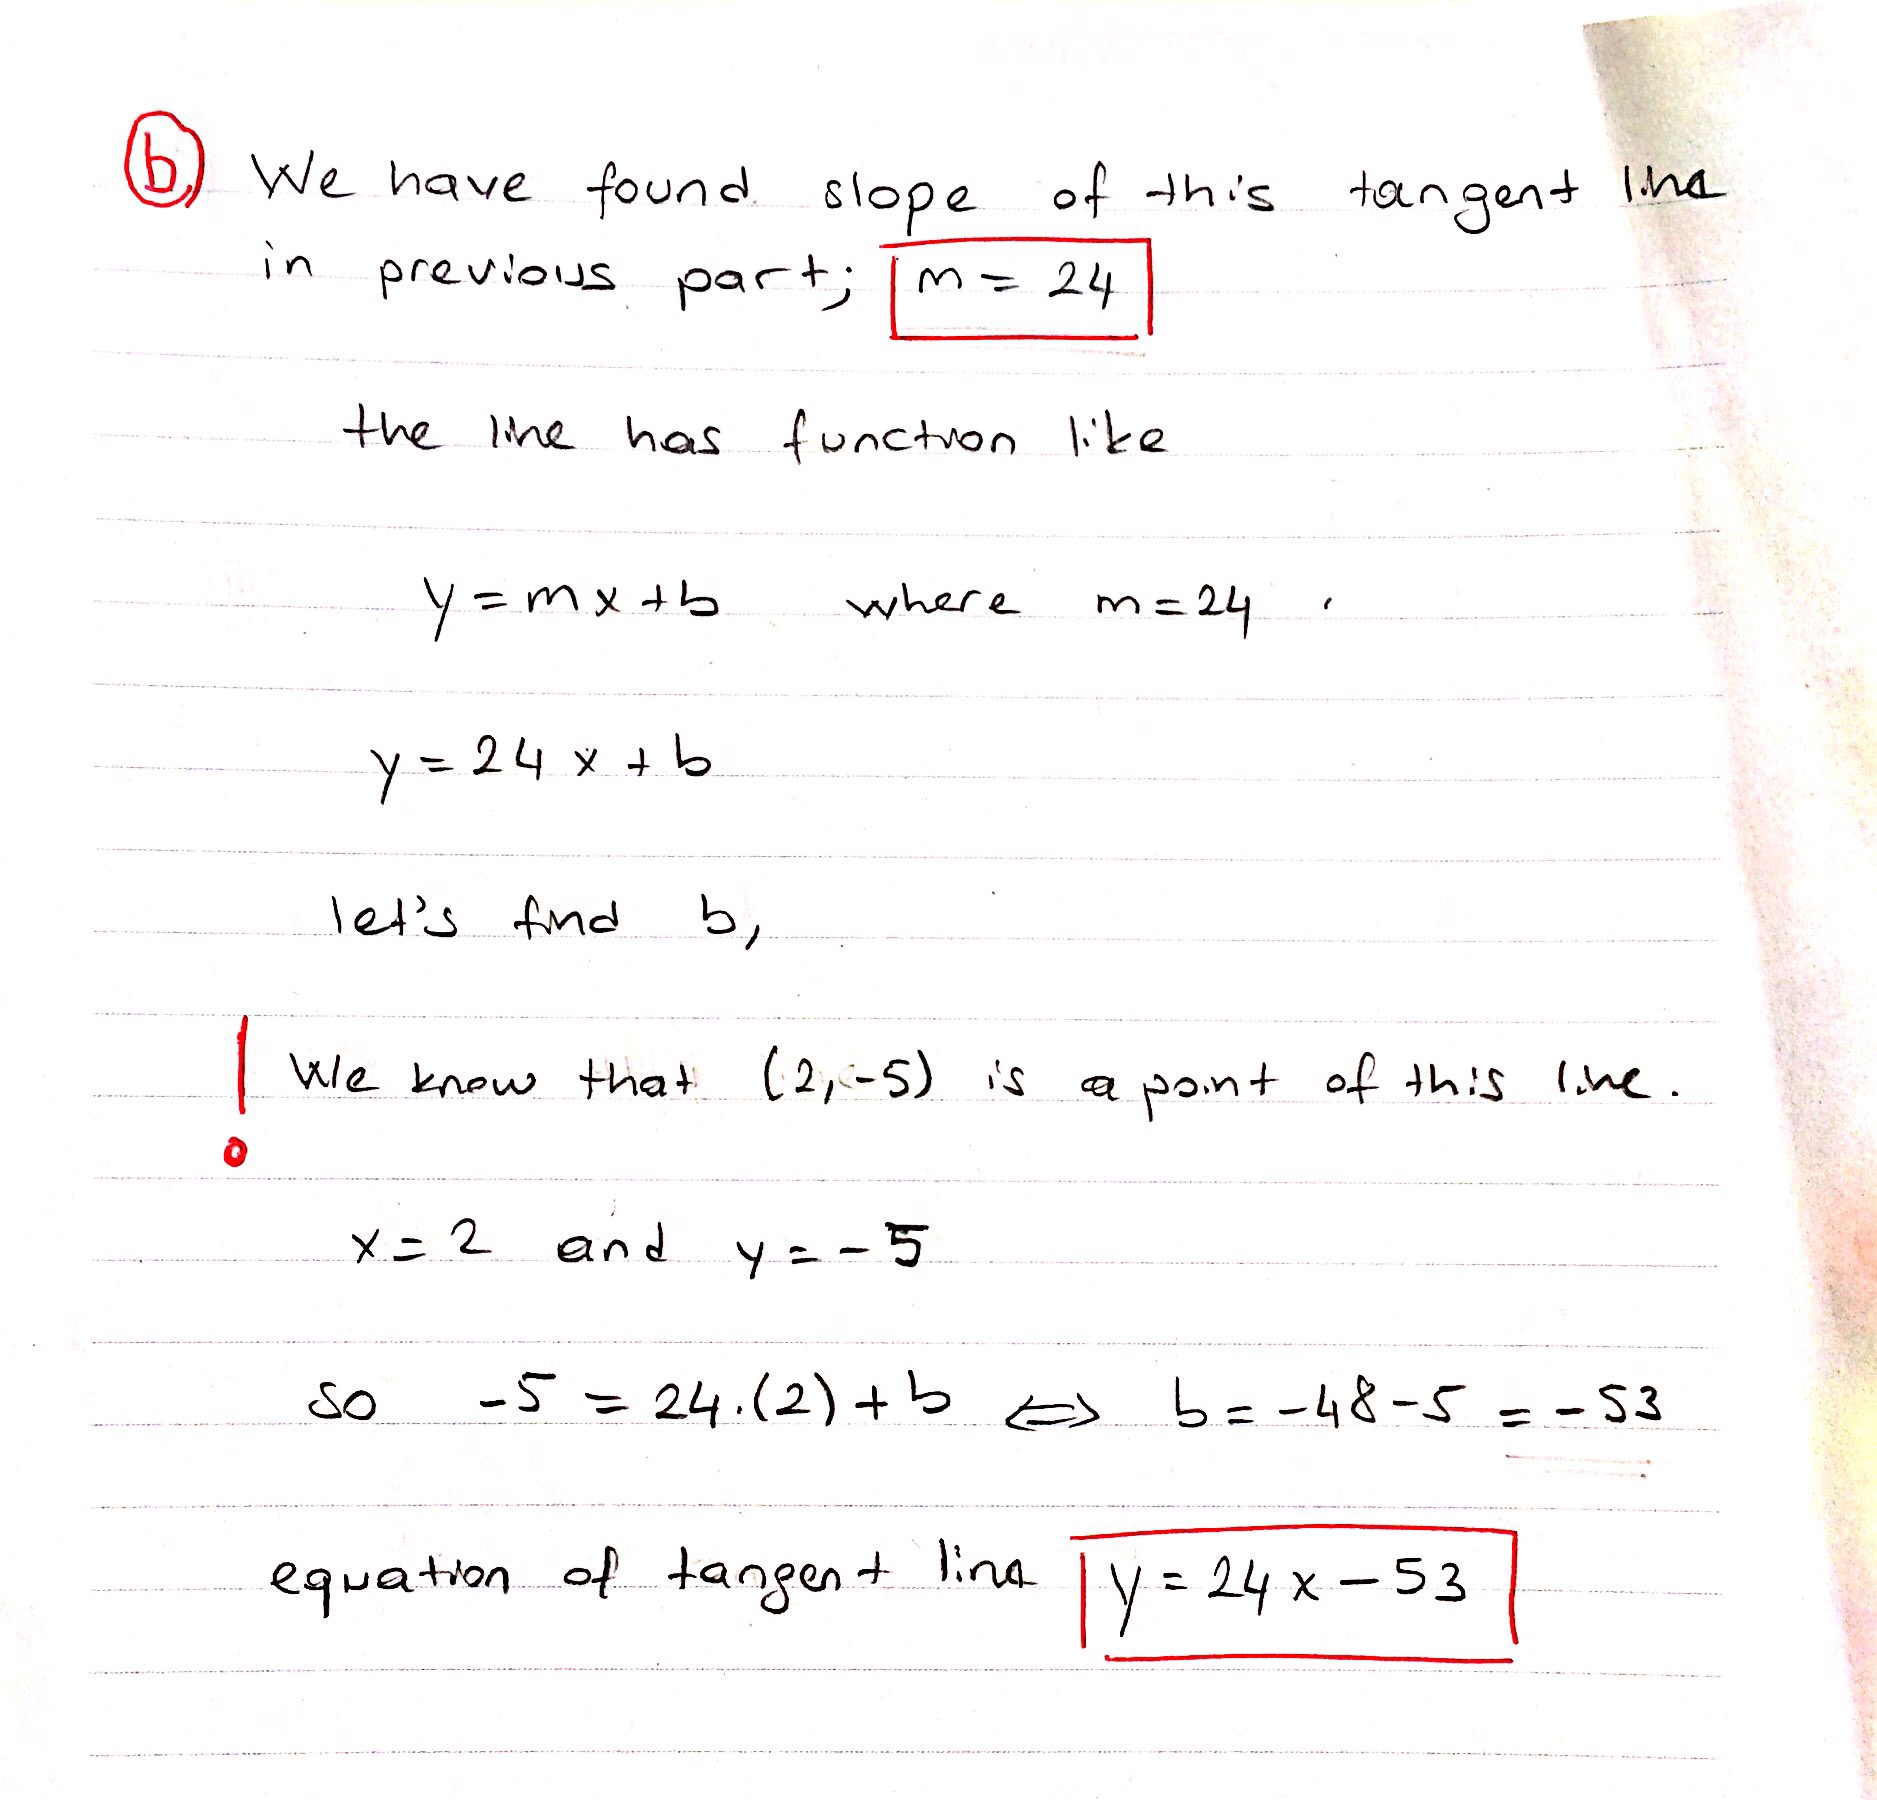 b) We have found slope of this tangent line
in previous part; m = 24
the line has function like
y = mx + b where m = 24
y = 24x + b
let's find b,
! We know that (2, -5) is a point of this line.
x = 2 and y = -5
so -5 = 24.(2) + b ⇔ b = -48 - 5 = -53
equation of tangent line y = 24x - 53